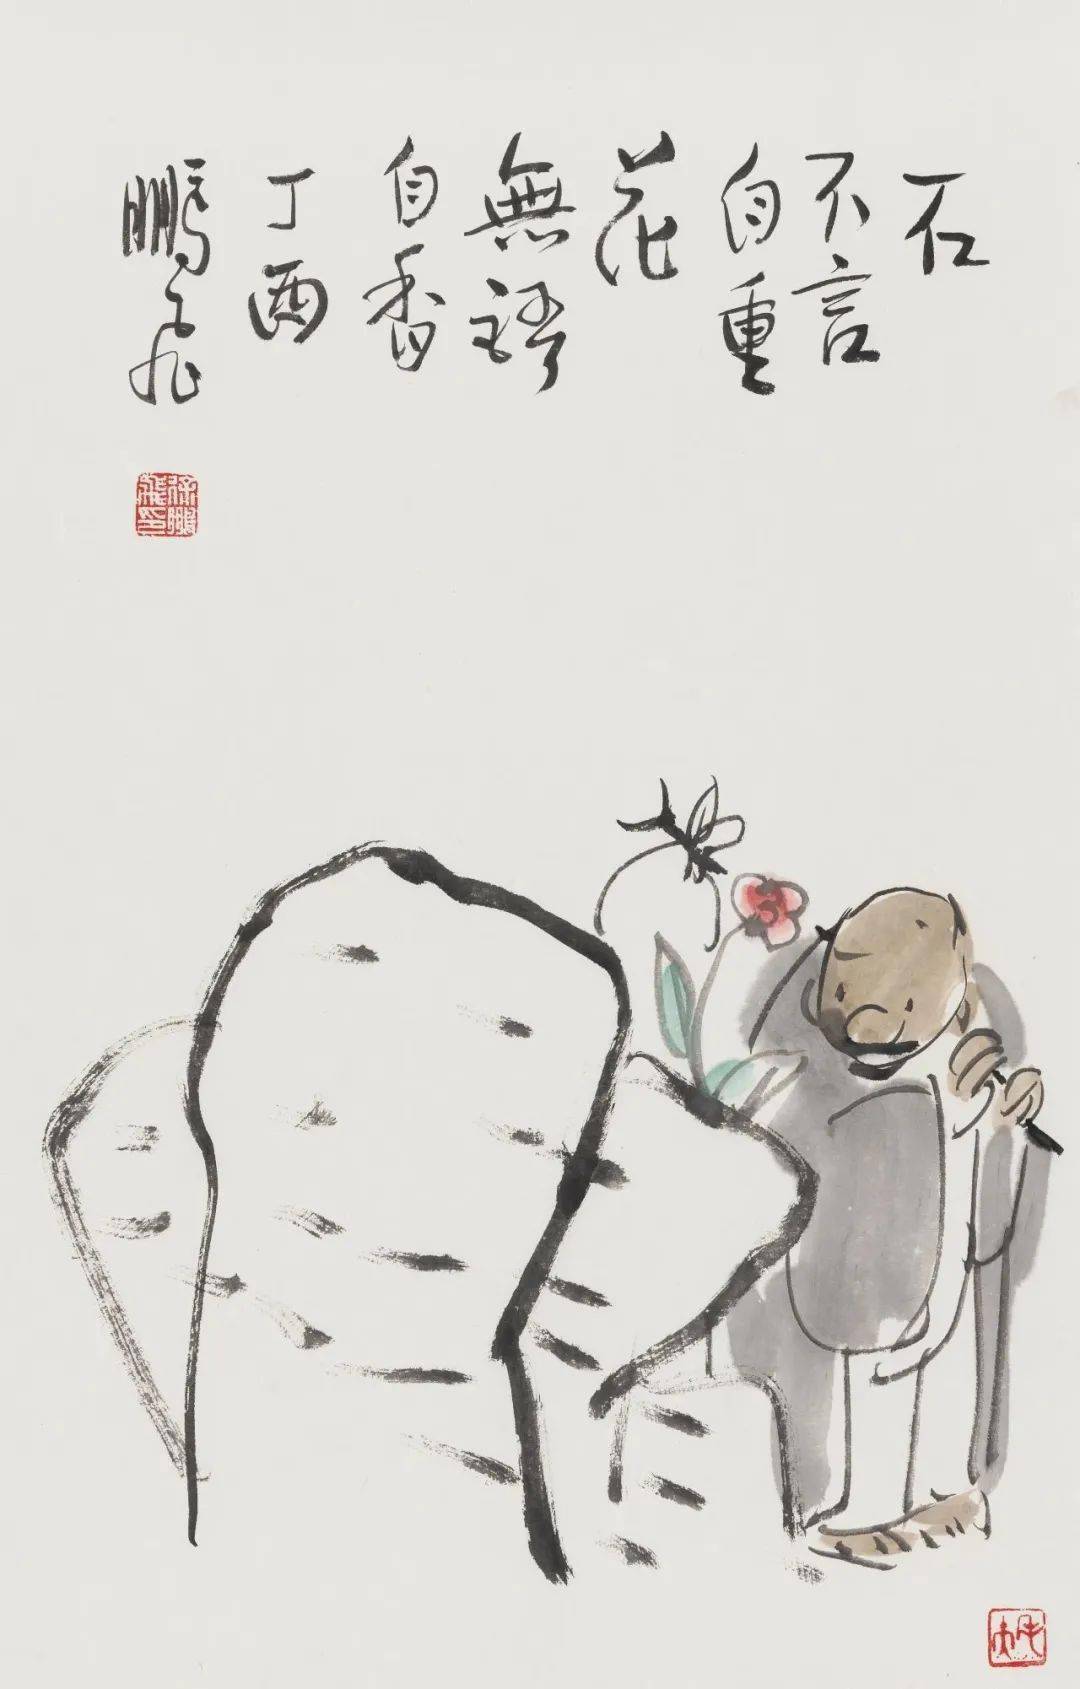 石
不言
自重
花
無語
自香
丁酉
鵬飛
徐鵬飛印